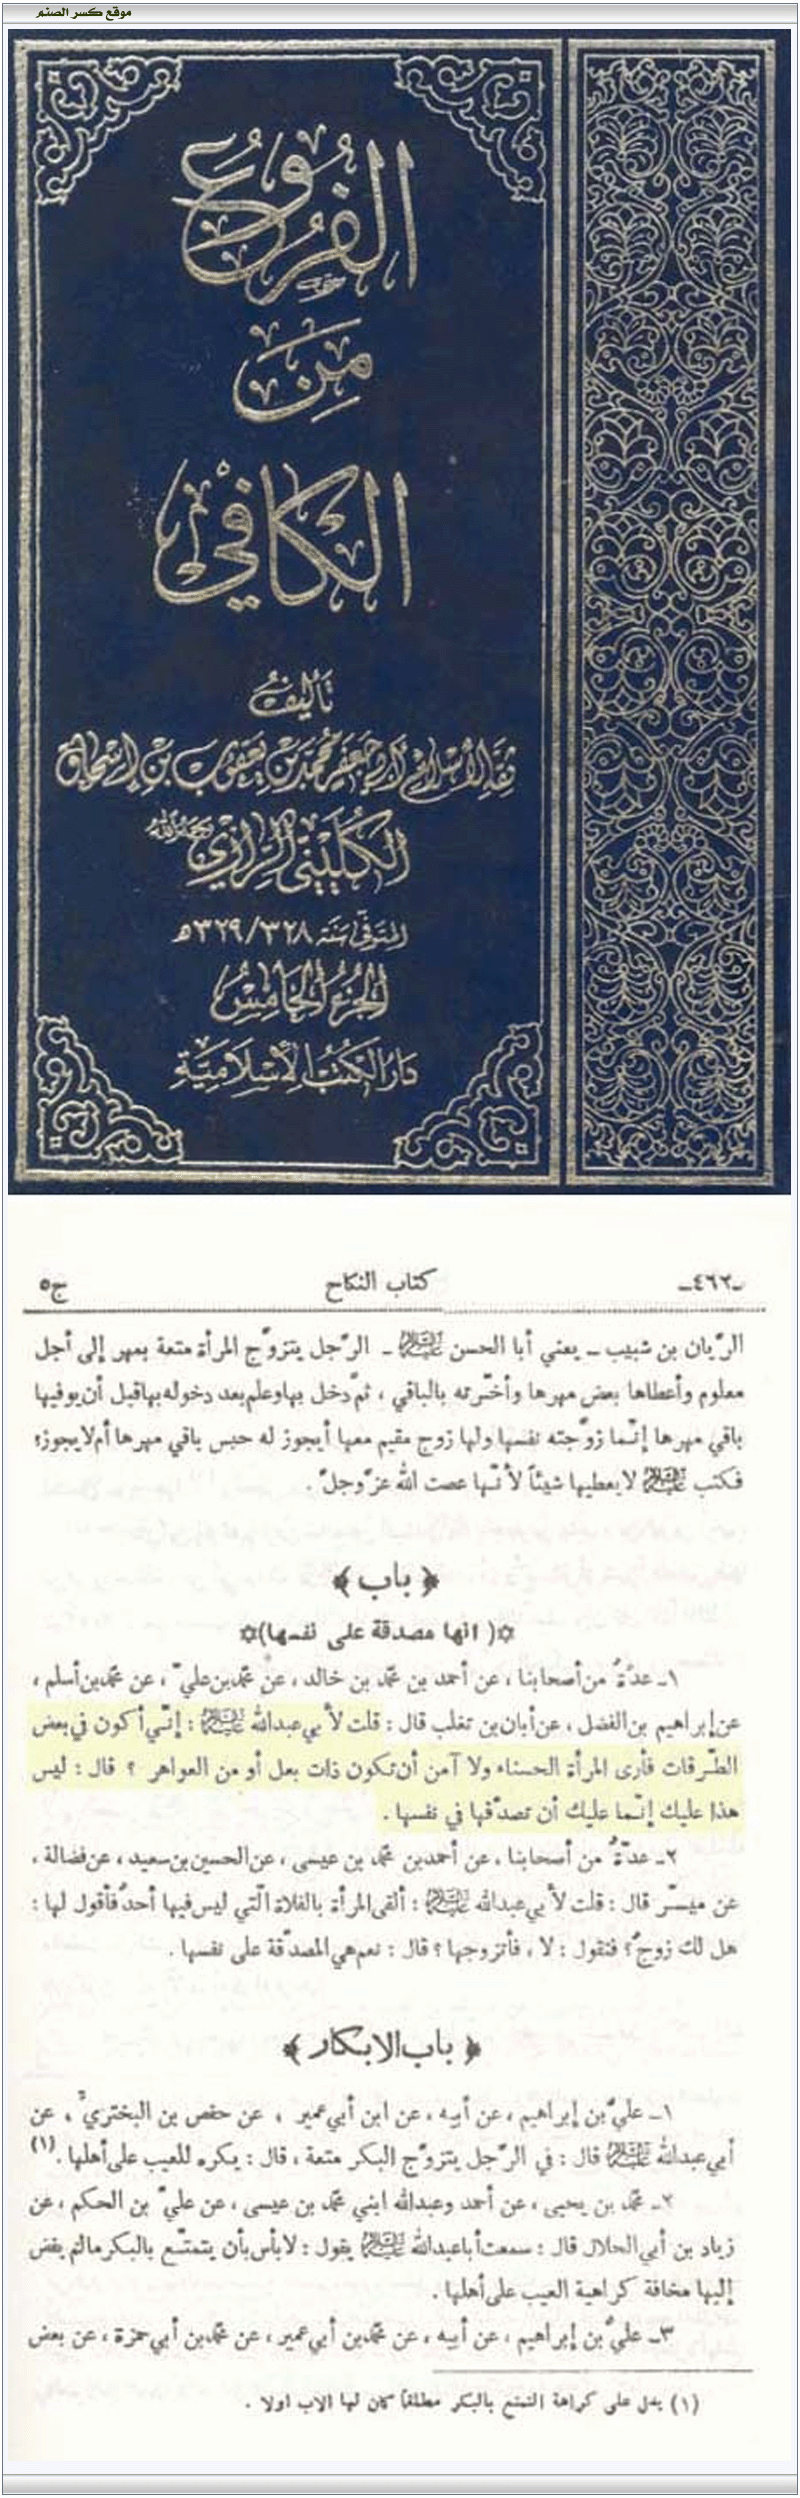 موقع كسر الصنم
الفروع
من
الكافي
تأليف
ثقة الإسلام أبي جعفر محمد بن يعقوب بن إسحاق
الكليني الرازي رحمه الله
المتوفى سنة ٣٢٨/٣٢٩ هـ
الجزء الخامس
دار الكتب الإسلامية
ـ٤٦٢ـ كتاب النكاح ج٥
الرّيان بن شبيب ـ يعني أبا الحسن عليه السلام ـ الرّجل يتزوّج المرأة متعة بمهر إلى أجل
معلوم وأعطاها بعض مهرها وأخّرته بالباقي ، ثمّ دخل بها وعلم بعد دخوله بها قبل أن يوفيها
باقي مهرها إنّما زوّجته نفسها ولها زوج مقيم معها أيجوز له حبس باقي مهرها أم لا يجوز؟
فكتب عليه السلام لا يعطيها شيئاً لأنّها عصت الله عزّوجلّ .
﴿ باب ﴾
✡( انها مصدقة على نفسها)✡
١ـ عدّةٌ من أصحابنا ، عن أحمد بن محمّد بن خالد ، عن محمّد بن عليّ ، عن محمّد بن أسلم ،
عن إبراهيم بن الفضل ، عن أبان بن تغلب قال : قلت لأبي عبدالله عليه السلام : إنّي أكون في بعض
الطّرقات فأرى المرأة الحسناء ولا آمن أن تكون ذات بعل أو من العواهر ؟ قال : ليس
هذا عليك إنّما عليك أن تصدّقها في نفسها .
٢ـ عدّةٌ من أصحابنا ، عن أحمد بن محمّد بن عيسى ، عن الحسين بن سعيد ، عن فضالة ،
عن ميسّر قال : قلت لأبي عبدالله عليه السلام : ألقى المرأة بالفلاة الّتي ليس فيها أحدٌ فأقول لها :
هل لك زوجٌ؟ فتقول : لا ، فأتزوجها ؟ قال : نعم هي المصدّقة على نفسها .
﴿ باب الابكار ﴾
١ـ عليّ بن إبراهيم ، عن أبيه ، عن ابن أبي عمير ، عن حفص بن البختريّ ، عن
أبي عبدالله عليه السلام قال : في الرّجل يتزوّج البكر متعة ، قال : يكره للعيب على أهلها .(١)
٢ـ محمّد بن يحيى ، عن أحمد وعبدالله ابني محمّد بن عيسى ، عن عليّ بن الحكم ، عن
زياد بن أبي الحلال قال : سمعت أبا عبدالله عليه السلام يقول : لا بأس بأن يتمتّع بالبكر مالم يفض
إليها مخافة كراهية العيب على أهلها .
٣ـ عليّ بن إبراهيم ، عن أبيه ، عن محمّد بن أبي عمير ، عن محمّد بن أبي حمزة ، عن بعض
(١) يدل على كراهة التمتع بالبكر مطلقاً كان لها الاب اولا .